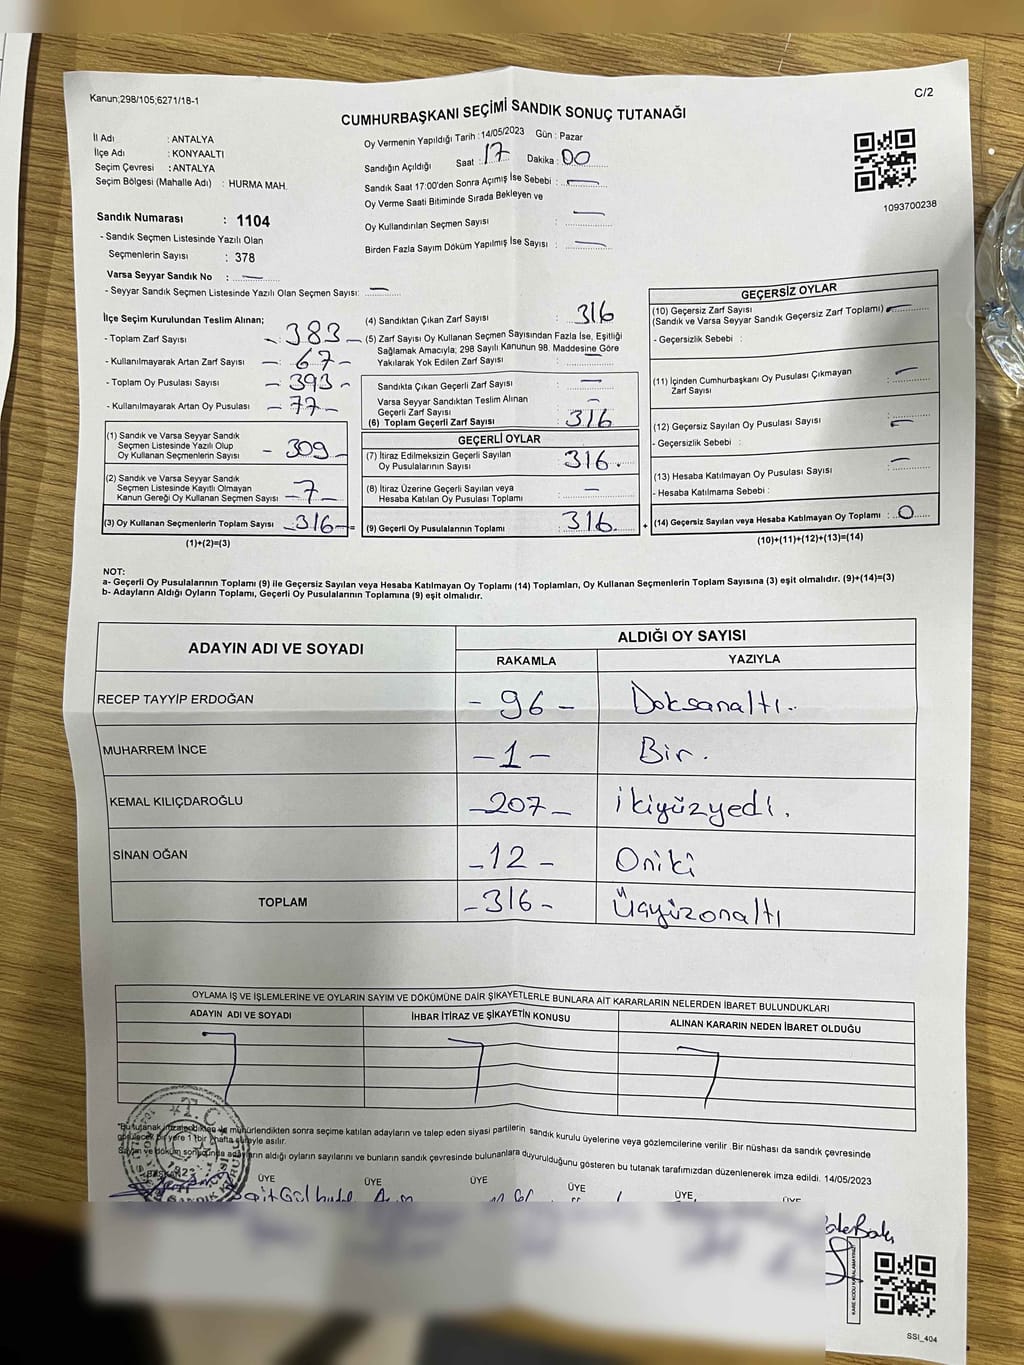 Kanun;298/105;6271/18-1
C/2
CUMHURBAŞKANI SEÇİMİ SANDIK SONUÇ TUTANAĞI
İl Adı : ANTALYA
İlçe Adı : KONYAALTI
Seçim Çevresi : ANTALYA
Seçim Bölgesi (Mahalle Adı) : HURMA MAH.
Sandık Numarası : 1104
- Sandık Seçmen Listesinde Yazılı Olan
Seçmenlerin Sayısı : 378
Varsa Seyyar Sandık No : —
- Seyyar Sandık Seçmen Listesinde Yazılı Olan Seçmen Sayısı: —
Oy Vermenin Yapıldığı Tarih : 14/05/2023 Gün : Pazar
Sandığın Açıldığı Saat : 17 Dakika : 00
Sandık Saat 17:00'den Sonra Açımış İse Sebebi : —
Oy Verme Saati Bitiminde Sırada Bekleyen ve
Oy Kullandırılan Seçmen Sayısı : —
Birden Fazla Sayım Döküm Yapılmış İse Sayısı : —
1093700238
İlçe Seçim Kurulundan Teslim Alınan;
- Toplam Zarf Sayısı - 383 -
- Kullanılmayarak Artan Zarf Sayısı - 67 -
- Toplam Oy Pusulası Sayısı - 393 -
- Kullanılmayarak Artan Oy Pusulası - 77 -
(1) Sandık ve Varsa Seyyar Sandık
Seçmen Listesinde Yazılı Olup
Oy Kullanan Seçmenlerin Sayısı - 309 -
(2) Sandık ve Varsa Seyyar Sandık
Seçmen Listesinde Kayıtlı Olmayan
Kanun Gereği Oy Kullanan Seçmen Sayısı - 7 -
(3) Oy Kullanan Seçmenlerin Toplam Sayısı - 316 -
(1)+(2)=(3)
(4) Sandıktan Çıkan Zarf Sayısı : 316
(5) Zarf Sayısı Oy Kullanan Seçmen Sayısından Fazla İse, Eşitliği
Sağlamak Amacıyla; 298 Sayılı Kanunun 98. Maddesine Göre
Yakılarak Yok Edilen Zarf Sayısı : —
Sandıkta Çıkan Geçerli Zarf Sayısı : —
Varsa Seyyar Sandıktan Teslim Alınan
Geçerli Zarf Sayısı : -
(6) Toplam Geçerli Zarf Sayısı : 316
GEÇERLİ OYLAR
(7) İtiraz Edilmeksizin Geçerli Sayılan
Oy Pusulalarının Sayısı : 316.
(8) İtiraz Üzerine Geçerli Sayılan veya
Hesaba Katılan Oy Pusulası Toplamı : —
(9) Geçerli Oy Pusulalarının Toplamı : 316.
GEÇERSİZ OYLAR
(10) Geçersiz Zarf Sayısı
(Sandık ve Varsa Seyyar Sandık Geçersiz Zarf Toplamı) : —
- Geçersizlik Sebebi :
(11) İçinden Cumhurbaşkanı Oy Pusulası Çıkmayan
Zarf Sayısı : —
(12) Geçersiz Sayılan Oy Pusulası Sayısı : —
- Geçersizlik Sebebi :
(13) Hesaba Katılmayan Oy Pusulası Sayısı : —
- Hesaba Katılmama Sebebi :
+ (14) Geçersiz Sayılan veya Hesaba Katılmayan Oy Toplamı : 0
(10)+(11)+(12)+(13)=(14)
NOT:
a- Geçerli Oy Pusulalarının Toplamı (9) ile Geçersiz Sayılan veya Hesaba Katılmayan Oy Toplamı (14) Toplamları, Oy Kullanan Seçmenlerin Toplam Sayısına (3) eşit olmalıdır. (9)+(14)=(3)
b- Adayların Aldığı Oyların Toplamı, Geçerli Oy Pusulalarının Toplamına (9) eşit olmalıdır.
ADAYIN ADI VE SOYADI
ALDIĞI OY SAYISI
RAKAMLA YAZIYLA
RECEP TAYYİP ERDOĞAN - 96 - Doksanaltı.
MUHARREM İNCE - 1 - Bir.
KEMAL KILIÇDAROĞLU - 207 - ikiyüzyedi.
SİNAN OĞAN - 12 - Oniki
TOPLAM - 316 - Üçyüzonaltı
OYLAMA İŞ VE İŞLEMLERİNE VE OYLARIN SAYIM VE DÖKÜMÜNE DAİR ŞİKAYETLERLE BUNLARA AİT KARARLARIN NELERDEN İBARET BULUNDUKLARI
ADAYIN ADI VE SOYADI İHBAR İTİRAZ VE ŞİKAYETİN KONUSU ALINAN KARARIN NEDEN İBARET OLDUĞU
*Bu tutanak imzalandıktan ve mühürlendikten sonra seçime katılan adayların ve talep eden siyasi partilerin sandık kurulu üyelerine ve gözlemcilerine verilir .Bir nüshası da sandık çevresinde
görülecek bir yere 1 (bir) hafta süreyle asılır.
Sayım ve döküm sonucunda adayların aldığı oyların sayılarını ve bunların sandık çevresinde bulunanlara duyurulduğunu gösteren bu tutanak tarafımızdan düzenlenerek imza edildi. 14/05/2023
T.C.
BAŞKAN ÜYE ÜYE ÜYE ÜYE ÜYE, ÜYE
KARE KODU KARALAMAYINIZ
SSI_404